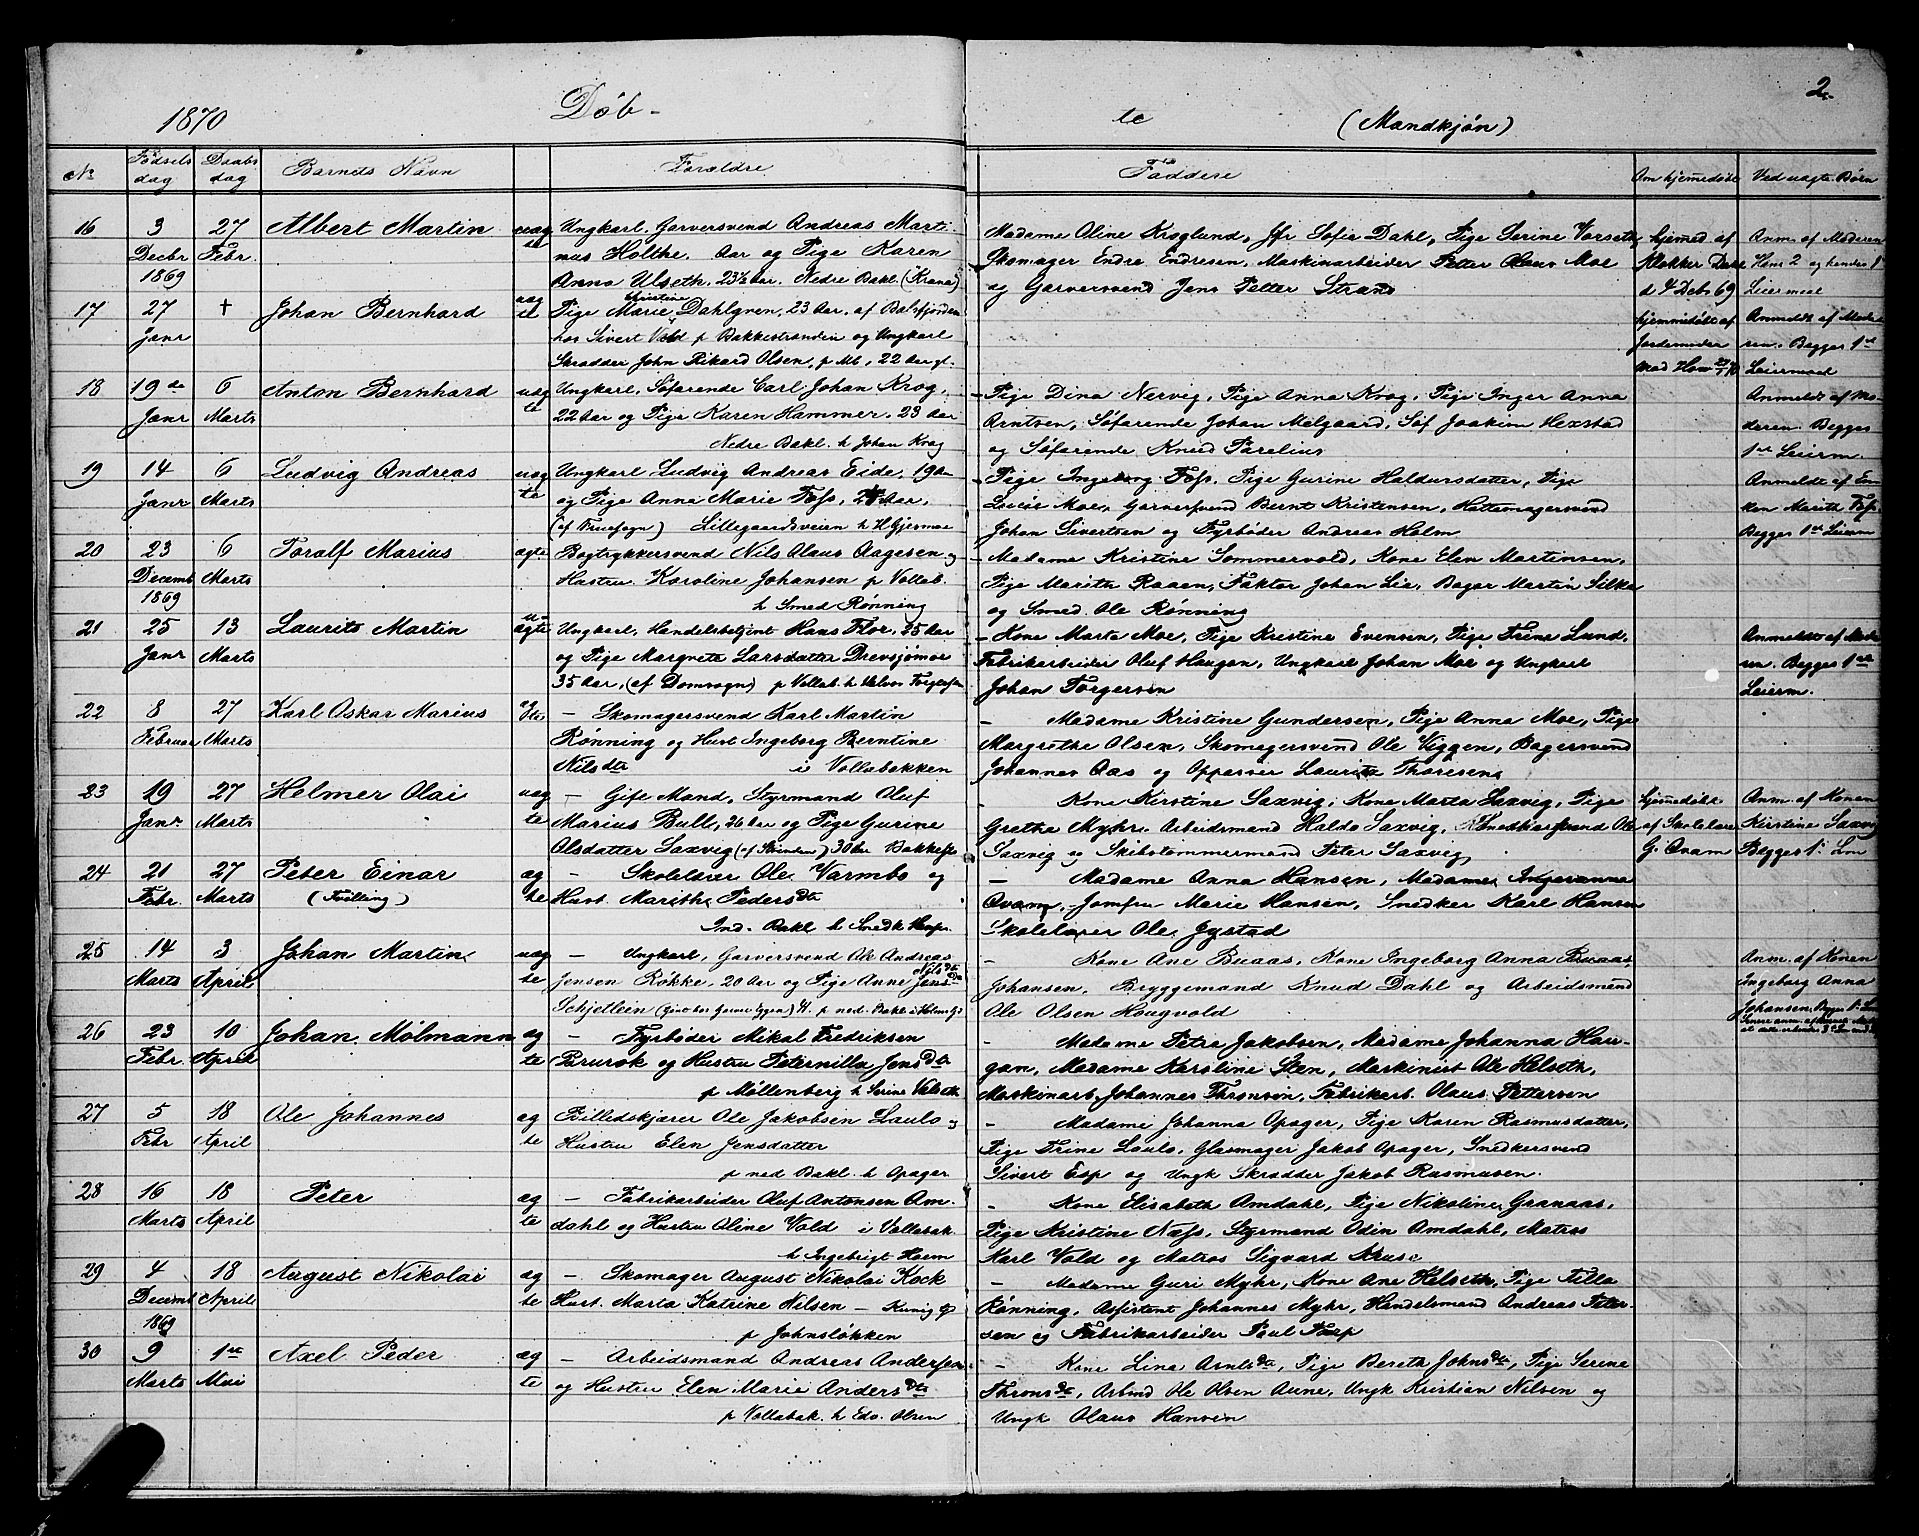 2.
1870 Døb- te (Mandkjøn)
No Fødsels dag Daabs dag Barnets Navn Forældre Faddere Om hjemmedøbt Ved uægte Børn
16 3 Decbr 1869 27 Febr. Albert Martin uægte
Ungkarl, Garversvend Andreas Marti-
nus Holthe. Aar og Pige Karen
Anna Ulseth, 23½ Aar. Nedre Bakl. (Krana)
Madame Oline Kroglund, Jfr Sofie Dahl, Pige Serine Vorseth,
Skomager Endre Endresen, Maskinarbeider Peter Olaus Moe
og Garversvend Jens Petter Strand
hjemed af
Klokker Dahl
d 4 Dcbr 69
Anm. af Moderen
Hans 2 og hendes 1
Leiermaal
17 27 Janr + Johan Bernhard uægte
Pige Marie Christine Dahlgren, 23 Aar, af Balsfjorden
hos Sivert Vold p Bakkestranden og Ungkarl
Skrædder John Rikard Olsen, p Mb, 22 Aar gl.
hjemmedøbt af
Jordemoder
Mad Hom
Anmeldt af Mode-
ren. Begges 1st
Leiermaal
18 19de Janr 6 Marts Anton Bernhard uægte
Ungkarl, Søfarende Carl Johan Krog,
22 Aar og Pige Karen Hammer. 23 Aar
Nedre Bakl. h Johan Krog
- Pige Dina Nervig, Pige Anna Krog, Pige Inger Anna
Arntsen, Søfarende Johan Melgaard, Søf Joakim Hexstad
og Søfarende Knud Parelius
Anmeldt af Mo-
deren. Begges
1st Leierm.
19 14 Janr 6 Marts Ludvig Andreas uægte
Ungkarl Ludvig Andreas Eide, 19 Aar
og Pige Anne Marie Foss, 24 Aar,
(af Fruesogn) Lillegaardsveien h H. Gjermoe
- Pige Ingeborg Foss, Pige Gurine Haldursdatter, Pige
Lovise Moe, Garversvend Bernt Kristensen, Hattemagersvend
Johan Sivertsen og Fyrbøder Andreas Holm
Anmeldt af En-
ken Marith Foss.
Begges 1st Leierm
20 23 Decemb 1869 6 Marts Toralf Marius ægte
Bogtrykkersvend Nils Olaus Aagesen og
Hustru Karoline Johansen p Vollab.
h Smed Rønning
- Madame Kristine Sommervold, Kone Elen Martinsen,
Pige Marith Raaen, Faktor Johan Lie, Bager Martin Silke
og Smed. Ole Rønning
21 25 Janr 13 Marts Laurits Martin uægte
Ungkarl, Handelsbetjent Hans Flor, 25 Aar
og Pige Margrete Larsdatter Drevsjømoe
35 Aar, (af Domsogn) p Vollab. h Halvor Torgersen
- Kone Marta Moe, Pige Kristine Evensen, Pige Trine Lund,
Fabrikarbeider Oluf Haugen, Ungkarl Johan Moe og Ungkarl
Johan Torgersen
Anmeldt af Mode-
ren. Begges 1st
Leierm.
22 8 Februar 27 Marts Karl Oskar Marius ægte
- Skomagersvend Karl Martin
Rønning og Hust Ingeborg Berntine
Nilsdtr i Vollabakken
- Madame Kristine Gundersen, Pige Anna Moe, Pige
Margrethe Olsen, Skomagersvend Ole Viggen, Bagersvend
Johannes Aas og Oppasser Laurits Thoresen
23 19 Janr. 27 Marts Helmer Olai uægte
- Gift Mand, Styrmand Oluf
Marius Bull, 26 Aar og Pige Gurine
Olsdatter Saxvig (af Strinden) 30 Aar Bakkestr
- Kone Kirstine Saxvig, Kone Marta Saxvig, Pige
Grethe Myhr. Arbeidsmand Haldo Saxvig, Snedkersvend Ole
Saxvig og Skibstømmermand Peter Saxvig
hjemedøbt
af Skolelærer
G. Ovam
Anm. af Konen
Kirstine Saxvig
Begges 1. Lm
24 21 Febr. 27 Marts Peter Einar (Tvilling) ægte
- Skolelærer Ole Varmbo og
Hust. Marithe Pedersdtr
Ind. Bakl h Snedk Hansen
- Madame Anna Hansen, Madame Ingeranna
Ovam, Jomfru Marie Hansen, Snedker Karl Hansen
Skolelærer Ole Jystad
25 14 Marts 3 April Johan Martin uægte
- Ungkarl, Garversvend Ole Andreas
Jensen Røkke, 20 Aar og Pige Anne
Schjetlein
- Kone Ane Buaas, Kone Ingeborg Anna Buaas,
Johansen, Bryggemand Knud Dahl og Arbeidsmand
Ole Olsen Hougvold
Anm. af Konen
Ingeborg Anna
Johansen.
26 23 Febr. 10 April Johan Mølmann ægte
- Fyrbøder Mikal Fredriksen
Brurok og Hustru Peternille Jensdtr
p Møllenberg h Serine Valseth
- Madame Petra Jakobsen, Madame Johanna Hau-
gan, Madame Karoline Sten, Maskinist Ole Helseth,
Maskinarb. Johannes Thronsen, Fabrikarb. Olaus Pettersen
27 5 Febr 18 April Ole Johannes ægte
Billedskjærer Ole Jakobsen Laulo og
Hustru Elen Jensdatter
p ned Bakl. h Opager
- Madame Johanna Opager, Pige Karen Rasmusdatter,
Pige Trine Loulo, Glasmager Jakob Opager, Snedkersvend
Sivert Esp og Ungk Skrædder Jakob Rasmusen.
28 16 Marts 18 April Peter ægte
- Fabrikarbeider Oluf Antonsen Am-
dahl og Hustru Oline Vold i Vollabak.
h Ingebrigt Hoem
- Kone Elisabeth Amdahl, Pige Nikoline Granaas,
Pige Kristine Næss, Styrmand Odin Amdahl, Matros
Karl Vold og Matros Sigvard Kruse
29 4 Decemb 1869 18 April August Nikolai ægte
- Skomager August Nikolai Kock
Hust. Marta Katrine Nilsen -
p Johnsløkken
- Madame Guri Myhr, Kone Ane Helseth, Pige Tilla
Rønning, Assistent Johannes Myhr, Handelsmand Andreas Peter-
sen og Fabrikarbeider Poul Torp
30 9 Marts 1ste Mai Axel Peder ægte
- Arbeidsmand Andreas Andersen
og Hustru Elen Marie Andersdtr
p Vollabak. h Edv. Olsen
- Kone Lina Arntsdtr, Pige Bereth Johnsdtr, Pige Serine
Thronsdtr, Arbmd Ole Olsen Aune, Ungk Kristian Nilsen og
Ungk Olaus Hansen